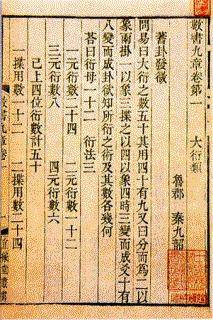 數書九章卷第一
魯郡 秦九韶
大衍類
蓍卦發微
問易曰大衍之數五十其用四十有九又曰分而為二以
象兩掛一以象三揲之以四以象四時三變而成爻十有
八變而成卦欲知所衍之術及其數各幾何
荅曰衍母一十二 衍法三
一元衍數二十四 二元衍數一十二
三元衍數八 四元衍數六
已上四位衍數計五十
一揲用數一十二 二揲用數二十四
數書九章 卷一
一
宜稼堂叢書